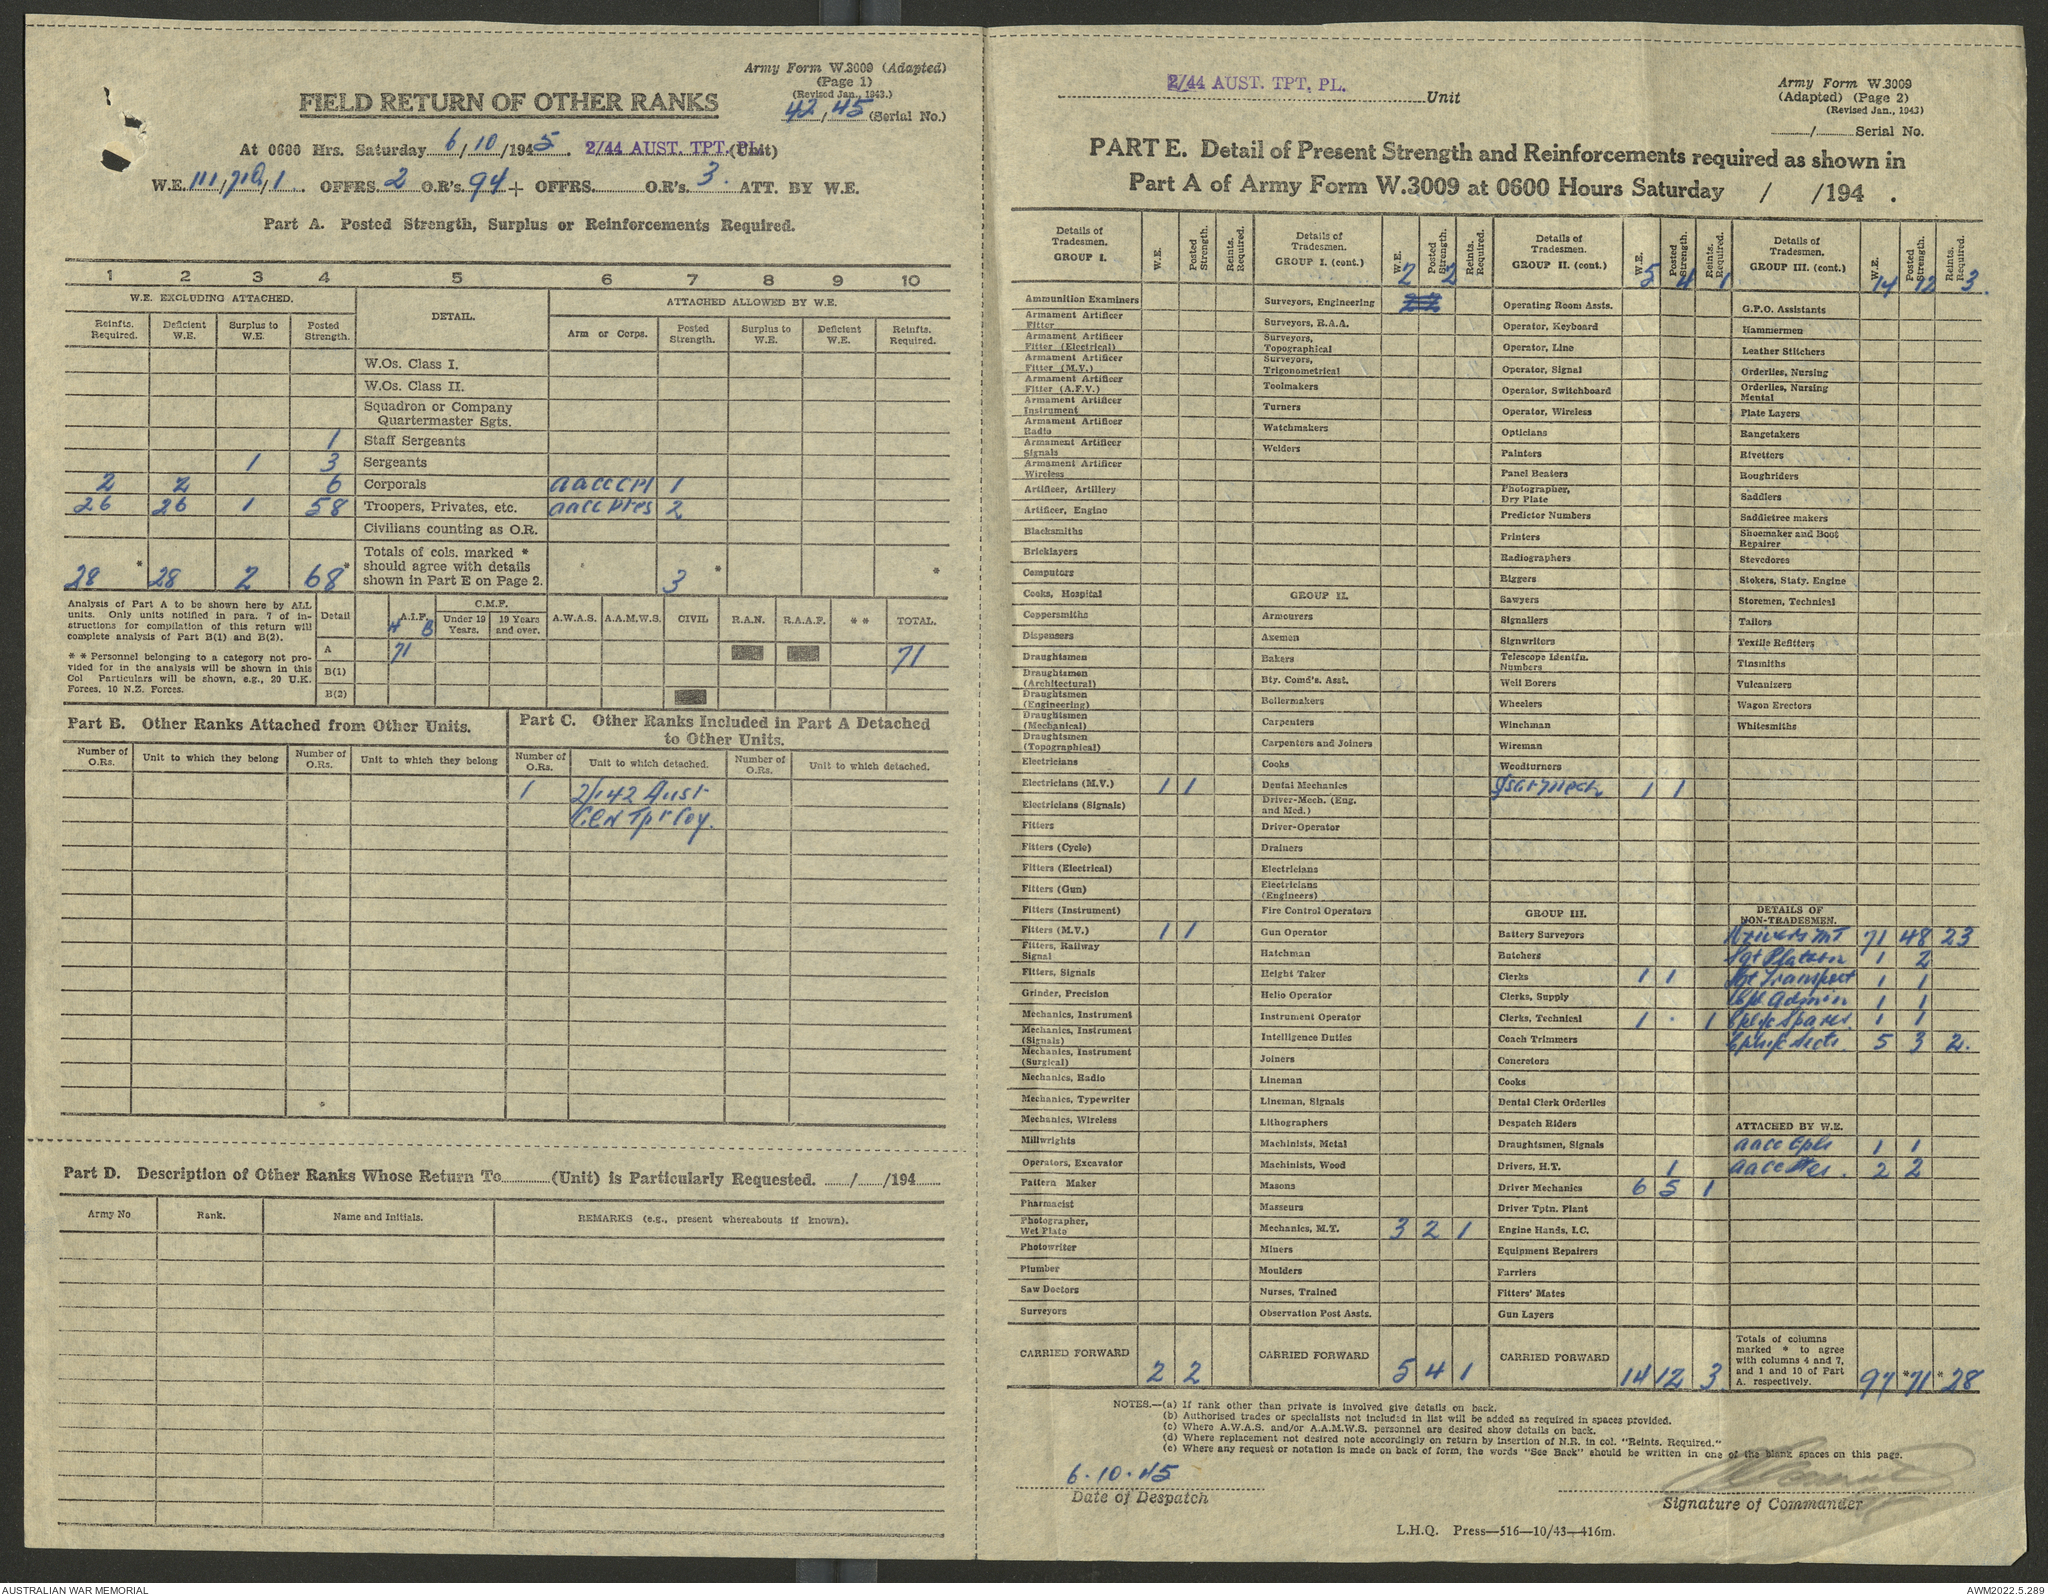 Army Form W.3009 (Adapted)
(Page 1)
(Revised Jan., 1943.)
FIELD RETURN OF OTHER RANKS
42, 45 (Serial No.)
At 0600 Hrs. Saturday 6/10/1945. 2/44 AUST. TPT. PL. (Unit)
W.E. OFFRS. 2 O.R's. 94 + OFFRS. O.R's. 3. ATT. BY W.E.
Part A. Posted Strength, Surplus or Reinforcements Required.
1 2 3 4 5 6 7 8 9 10
W.E. EXCLUDING ATTACHED. DETAIL. ATTACHED ALLOWED BY W.E.
Reinfts. Required. Deficient W.E. Surplus to W.E. Posted Strength. Arm or Corps. Posted Strength. Surplus to W.E. Deficient W.E. Reinfts. Required.
W.Os. Class I.
W.Os. Class II.
Squadron or Company
Quartermaster Sgts.
1 Staff Sergeants
1 3 Sergeants
2 2 6 Corporals aacc Cpl 1
26 26 1 58 Troopers, Privates, etc. aacc ptes 2
Civilians counting as O.R.
Totals of cols. marked *
should agree with details
shown in Part E on Page 2.
28 * 28 2 68 * 3 * *
Analysis of Part A to be shown here by ALL
units. Only units notified in para. 7 of in-
structions for compilation of this return will
complete analysis of Part B(1) and B(2).
* * Personnel belonging to a category not pro-
vided for in the analysis will be shown in this
Col Particulars will be shown, e.g., 20 U.K.
Forces, 10 N.Z. Forces.
Detail A.I.F. C.M.F. Under 19 Years. 19 Years and over. A.W.A.S. A.A.M.W.S. CIVIL R.A.N. R.A.A.F. * * TOTAL.
A 71 71
B(1)
B(2)
Part B. Other Ranks Attached from Other Units.
Number of O.Rs. Unit to which they belong Number of O.Rs. Unit to which they belong
Part C. Other Ranks Included in Part A Detached
to Other Units.
Number of O.Rs. Unit to which detached. Number of O.Rs. Unit to which detached.
1 2/142 Aust
Gen Tpt Coy.
Part D. Description of Other Ranks Whose Return To (Unit) is Particularly Requested. / /194
Army No. Rank. Name and Initials. REMARKS (e.g., present whereabouts if known).
2/44 AUST. TPT. PL. Unit
Army Form W.3009
(Adapted) (Page 2)
(Revised Jan., 1943)
/ Serial No.
PART E. Detail of Present Strength and Reinforcements required as shown in
Part A of Army Form W.3009 at 0600 Hours Saturday / /194 .
Details of Tradesmen. GROUP I. W.E. Posted Strength. Reints. Required.
Ammunition Examiners
Armament Artificer Fitter
Armament Artificer Fitter (Electrical)
Armament Artificer Fitter (M.V.)
Armament Artificer Fitter (A.F.V.)
Armament Artificer Instrument
Armament Artificer Radio
Armament Artificer Signals
Armament Artificer Wireless
Artificer, Artillery
Artificer, Engine
Blacksmiths
Bricklayers
Computors
Cooks, Hospital
Coppersmiths
Dispensers
Draughtsmen
Draughtsmen (Architectural)
Draughtsmen (Engineering)
Draughtsmen (Mechanical)
Draughtsmen (Topographical)
Electricians
Electricians (M.V.) 1 1
Electricians (Signals)
Fitters
Fitters (Cycle)
Fitters (Electrical)
Fitters (Gun)
Fitters (Instrument)
Fitters (M.V.) 1 1
Fitters, Railway Signal
Fitters, Signals
Grinder, Precision
Mechanics, Instrument
Mechanics, Instrument (Signals)
Mechanics, Instrument (Surgical)
Mechanics, Radio
Mechanics, Typewriter
Mechanics, Wireless
Millwrights
Operators, Excavator
Pattern Maker
Pharmacist
Photographer, Wet Plate
Photowriter
Plumber
Saw Doctors
Surveyors
CARRIED FORWARD 2 2
Details of Tradesmen. GROUP I. (cont.) W.E. Posted Strength. Reints. Required.
2 2
Surveyors, Engineering
Surveyors, R.A.A.
Surveyors, Topographical
Surveyors, Trigonometrical
Toolmakers
Turners
Watchmakers
Welders
GROUP II.
Armourers
Axemen
Bakers
Bty. Comd's. Asst.
Boilermakers
Carpenters
Carpenters and Joiners
Cooks
Dental Mechanics
Driver-Mech. (Eng. and Med.)
Driver-Operator
Drainers
Electricians
Electricians (Engineers)
Fire Control Operators
Gun Operator
Hatchman
Height Taker
Helio Operator
Instrument Operator
Intelligence Duties
Joiners
Lineman
Lineman, Signals
Lithographers
Machinists, Metal
Machinists, Wood
Masons
Masseurs
Mechanics, M.T. 3 2 1
Miners
Moulders
Nurses, Trained
Observation Post Assts.
CARRIED FORWARD 5 4 1
Details of Tradesmen. GROUP II. (cont.) W.E. Posted Strength. Reints. Required.
5 4 1
Operating Room Assts.
Operator, Keyboard
Operator, Line
Operator, Signal
Operator, Switchboard
Operator, Wireless
Opticians
Painters
Panel Beaters
Photographer, Dry Plate
Predictor Numbers
Printers
Radiographers
Riggers
Sawyers
Signallers
Signwriters
Telescope Identfn. Numbers
Well Borers
Wheelers
Winchman
Wireman
Woodturners
1 1
GROUP III.
Battery Surveyors
Butchers
Clerks 1 1
Clerks, Supply
Clerks, Technical 1 . 1
Coach Trimmers
Concretors
Cooks
Dental Clerk Orderlies
Despatch Riders
Draughtsmen, Signals
Drivers, H.T. 1
Driver Mechanics 6 5 1
Driver Tptn. Plant
Engine Hands, I.C.
Equipment Repairers
Farriers
Fitters' Mates
Gun Layers
CARRIED FORWARD 14 12 3
Details of Tradesmen. GROUP III. (cont.) W.E. Posted Strength. Reints. Required.
14 12 3.
G.P.O. Assistants
Hammermen
Leather Stitchers
Orderlies, Nursing
Orderlies, Nursing Mental
Plate Layers
Rangetakers
Rivetters
Roughriders
Saddlers
Saddletree makers
Shoemaker and Boot Repairer
Stevedores
Stokers, Staty. Engine
Storemen, Technical
Tailors
Textile Refitters
Tinsmiths
Vulcanizers
Wagon Erectors
Whitesmiths
DETAILS OF NON-TRADESMEN.
Drivers MT 71 48 23
Sgt Platoon 1 2
Sgt Transport 1 1
Cpl Admin 1 1
Cpl i/c Spares. 1 1
Cpls i/c Sects. 5 3 2.
ATTACHED BY W.E.
aacc Cpls 1 1
aacc Ptes. 2 2
Totals of columns
marked * to agree
with columns 4 and 7,
and 1 and 10 of Part
A. respectively. 97 *71 *28
NOTES.—(a) If rank other than private is involved give details on back.
(b) Authorised trades or specialists not included in list will be added as required in spaces provided.
(c) Where A.W.A.S. and/or A.A.M.W.S. personnel are desired show details on back.
(d) Where replacement not desired note accordingly on return by insertion of N.R. in col. "Reints. Required."
(e) Where any request or notation is made on back of form, the words "See Back" should be written in one of the blank spaces on this page.
6.10.45
Date of Despatch
Signature of Commander
L.H.Q. Press—516—10/43—416m.
AUSTRALIAN WAR MEMORIAL
AWM2022.5.289